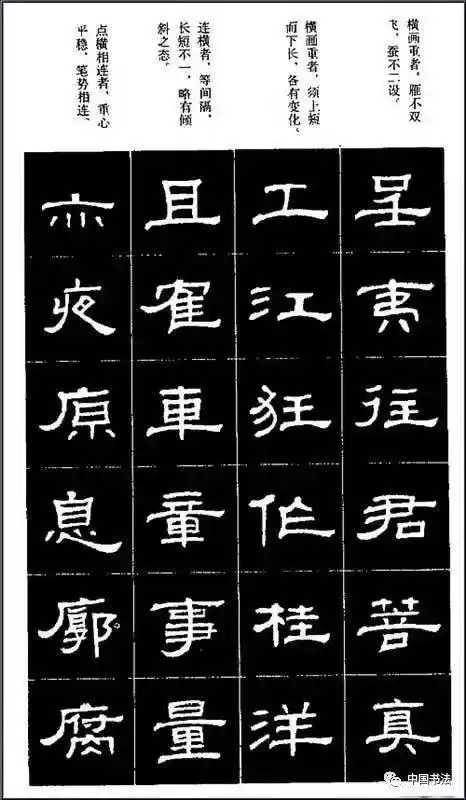 横画重者，雁不双
飞，蚕不二设。
横画重者，须上短
而下长，各有变化。
连横者，等间隔，
长短不一，略有倾
斜之态。
点横相连者，重心
平稳，笔势相连。
呈夷往君菩真
工江狂作桂洋
且車童事量
亦夜原息廓腐
中国书法